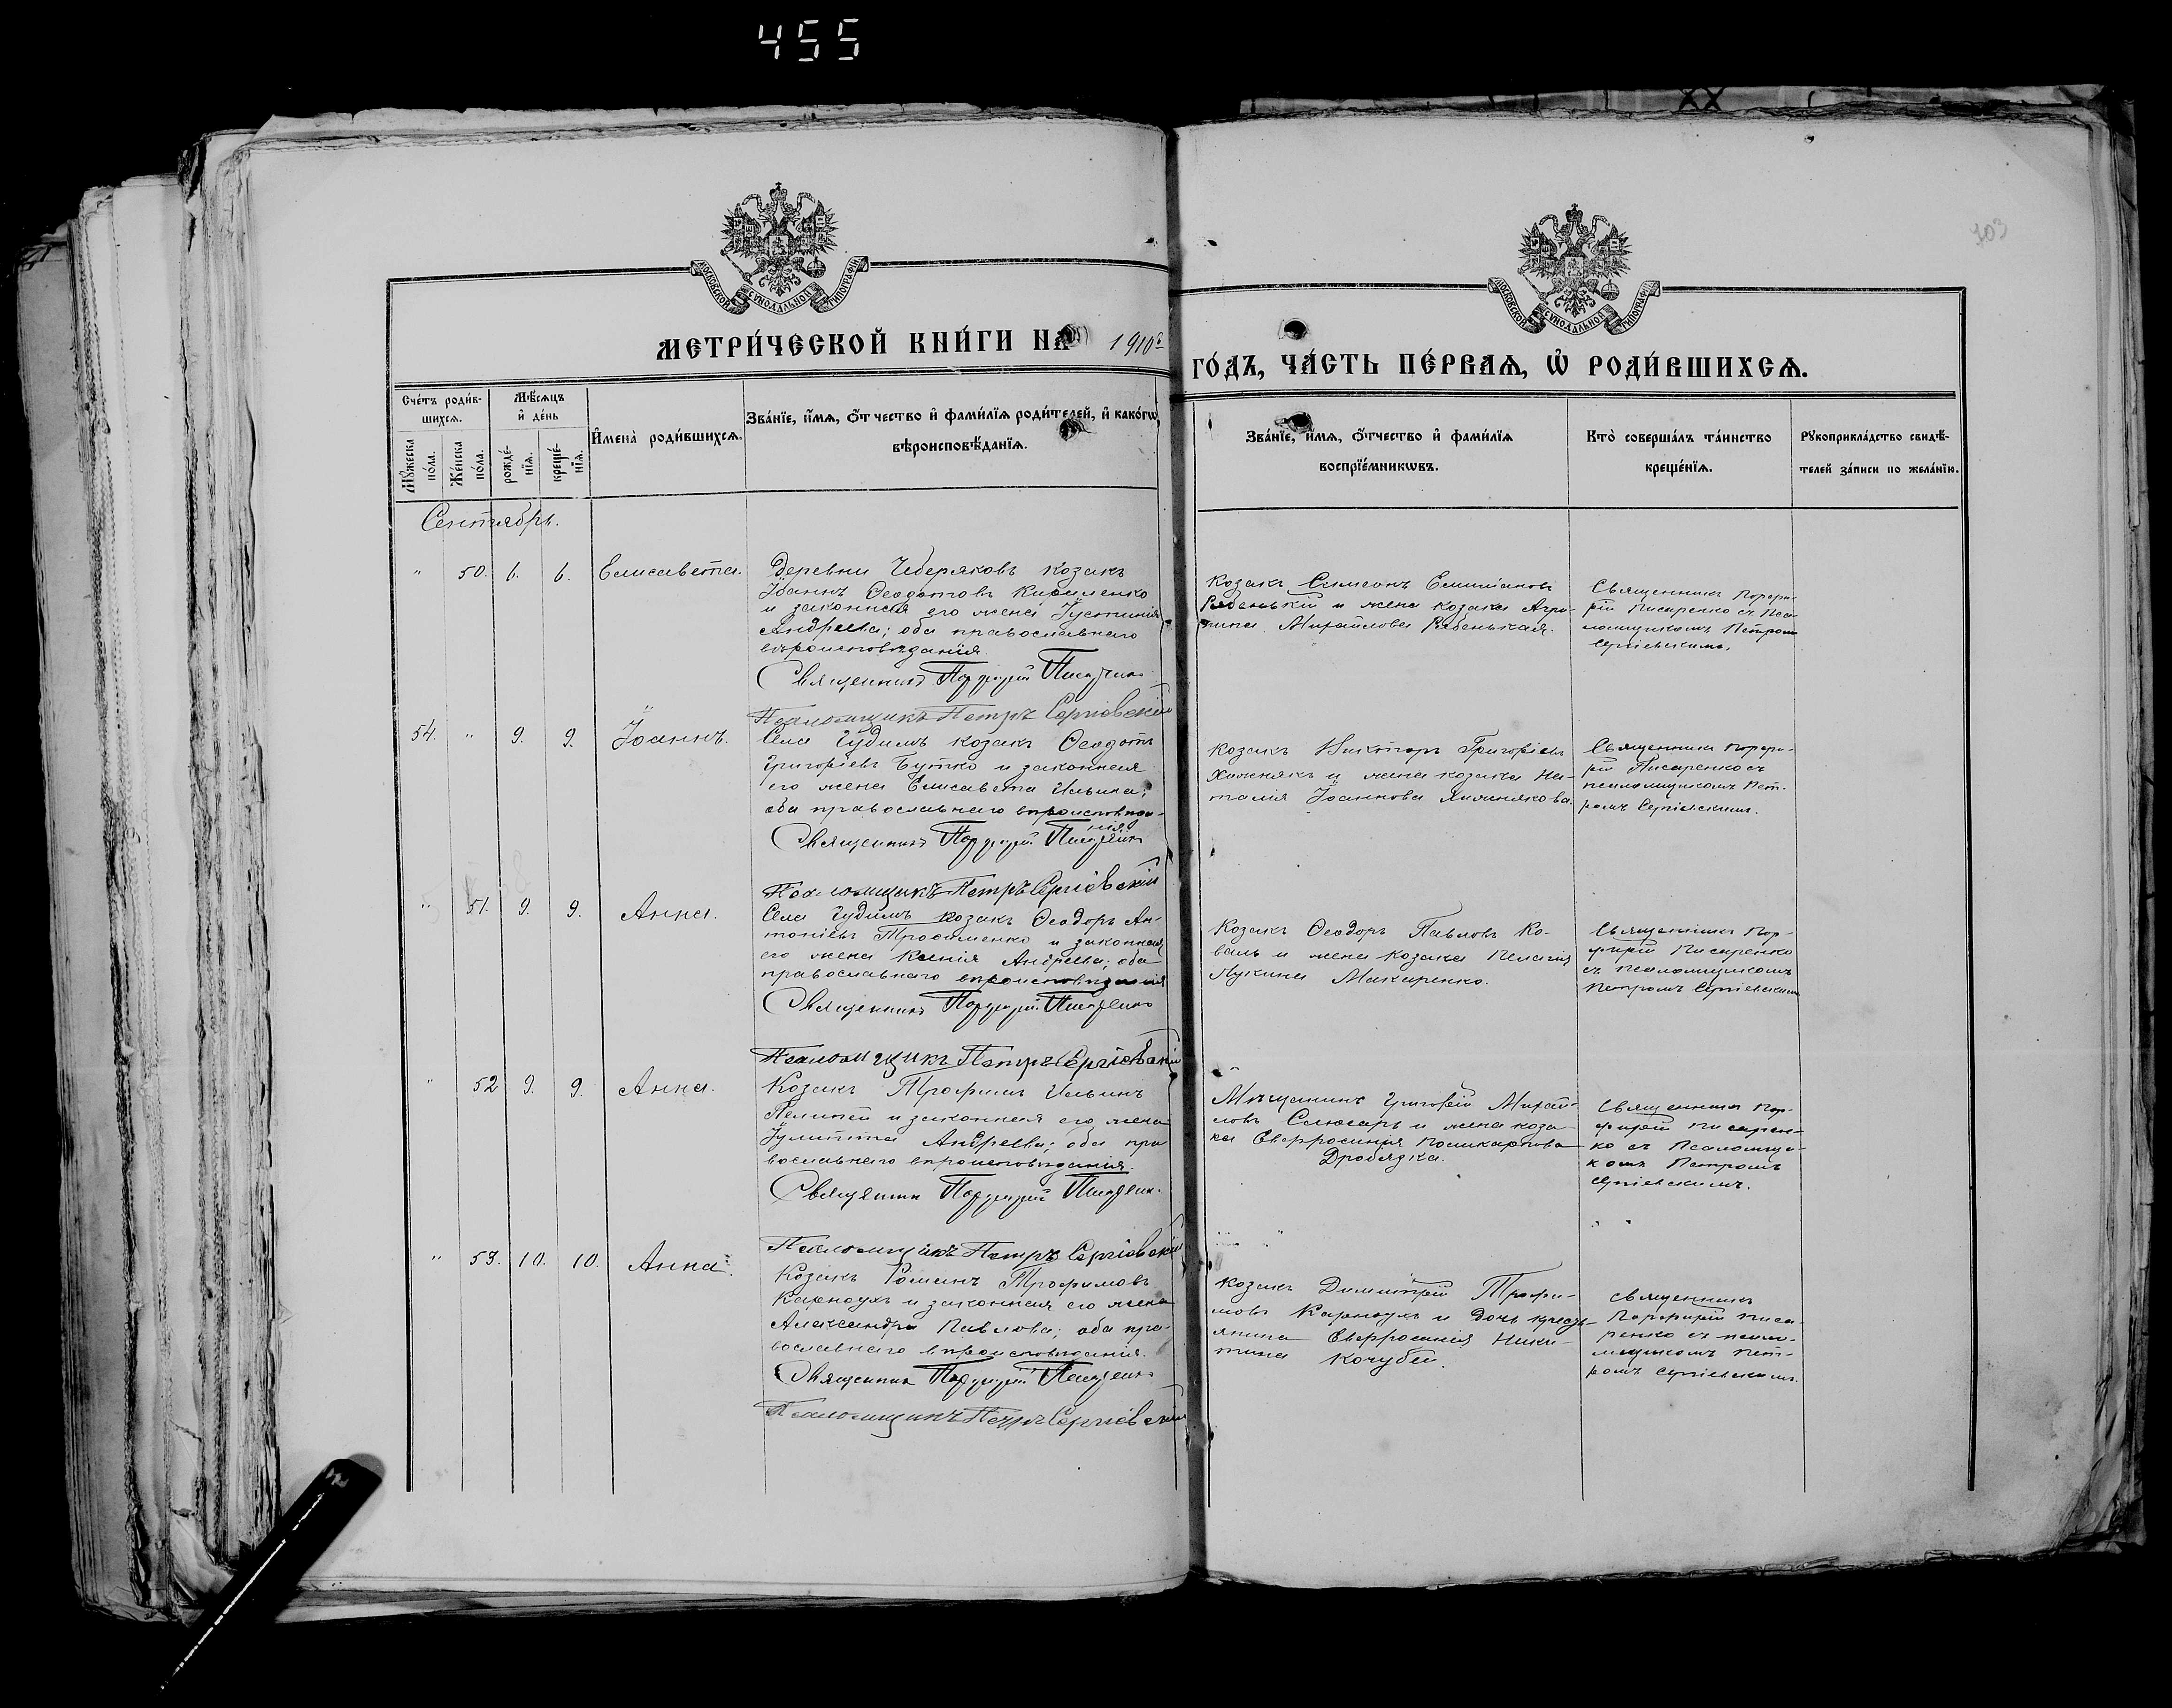 455
103
МОСКОВСКОЙ СѴНОДАЛЬНОЙ ТИПОГРАФІИ
МОСКОВСКОЙ СѴНОДАЛЬНОЙ ТИПОГРАФІИ
МЕТРИ́ЧЕСКОЙ КНИ́ГИ НА 1910
ГО́ДЪ, ЧА́СТЬ ПЕ́РВАѦ, Ѡ҆ РОДИ́ВШИХСѦ.
Сче́тъ роди́в-
шихсѧ.
Мꙋ́жеска по́ла.
Же́нска по́ла.
Мѣ́сѧцъ
и҆ де́нь
рожде́-
нїѧ.
креще́-
нїѧ.
И҆мена̀ роди́вшихсѧ.
Зва́нїе, и҆́мѧ, ѻ҆́тчество и҆ фами́лїѧ роди́телей, и҆ како́гѡ
вѣроисповѣ́данїѧ.
Зва́нїе, и҆́мѧ, ѻ҆́тчество и҆ фами́лїѧ
воспрїе́мникѡвъ.
Кто̀ соверша́лъ та́инство
креще́нїѧ.
Рꙋкоприкла́дство свидѣ́-
телей за́писи по жела́нїю.
Сентябрь.
" 50. 6. 6. Елисавета.
Деревни Чеберяковъ козакъ
Іоаннъ Ѳеодотовъ
и законная его жена Іустинія
Андреева; оба православнаго
вѣроисповѣданія.
Священникъ Порфирій Писаренко
Псаломщикъ Петръ Сергіевскій
Козакъ Симеонъ Емиліановъ
Рябенькій и жена козака Агри-
пина Михайлова Рябенькая.
Священникъ Порфи-
рій Писаренко съ Пса-
ломщикомъ Петромъ
Сергіевскимъ.
54. " 9. 9. Іоаннъ.
Села Чудимъ козакъ Ѳеодотъ
Григоріевъ Бутко и законная
его жена Елисавета Ильина;
оба православнаго вѣроисповѣда-
нія
Священникъ Порфирій Писаренко
Псаломщикъ Петръ Сергіевскій
Козакъ Никторъ Григоріевъ
Хижнякъ и жена козака На-
талія Іоаннова Хижнякова.
Священникъ Порфи-
рій Писаренко съ
псаломщикомъ Пет-
ромъ Сергіевскимъ.
" 51. 9. 9. Анна.
Села Чудимъ козакъ Ѳеодоръ Ан-
тоніевъ Трофименко и законная
его жена Ксенія Андреева; оба
православнаго вѣроисповѣданія
Священникъ Порфирій Писаренко
Псаломщикъ Петръ Сергіевскій
Козакъ Ѳеодоръ Павловъ Ко-
валь и жена козака Пелагія
Лукина Макаренко.
Священникъ Пор-
фирій Писаренко
съ Псаломщикомъ
Петромъ Сергіевскимъ
" 52 9. 9. Анна.
Козакъ Трофимъ Ильинъ
и законная его жена
Іулитта Андреева; оба пра
вославнаго вѣроисповѣданія.
Священникъ Порфирій Писаренко
Псаломщикъ Петръ Сергіевскій
Мѣщанинъ Григорій Михай-
ловъ Слюсарь и жена коза-
ка Евфросинія Поликарпова
Дробязка.
Священникъ Пор-
фирій Писарен-
ко съ Псаломщи-
комъ Петромъ
Сергіевскимъ.
" 53. 10. 10. Анна.
Козакъ Романъ Трофимовъ
Карнаухъ и законная его жена
Александра Павлова; оба пра-
вославнаго вѣроисповѣданія.
Священникъ Порфирій Писаренко
Псаломщикъ Петръ Сергіевскій
Козакъ Димитрій Трофи-
мовъ Карнаухъ и дочь кресть-
янина Евфросинія Ники-
тина Кочубей.
Священникъ
Порфирій Писа-
ренко съ псало-
мщикомъ Пет-
ромъ Сергіевскимъ.